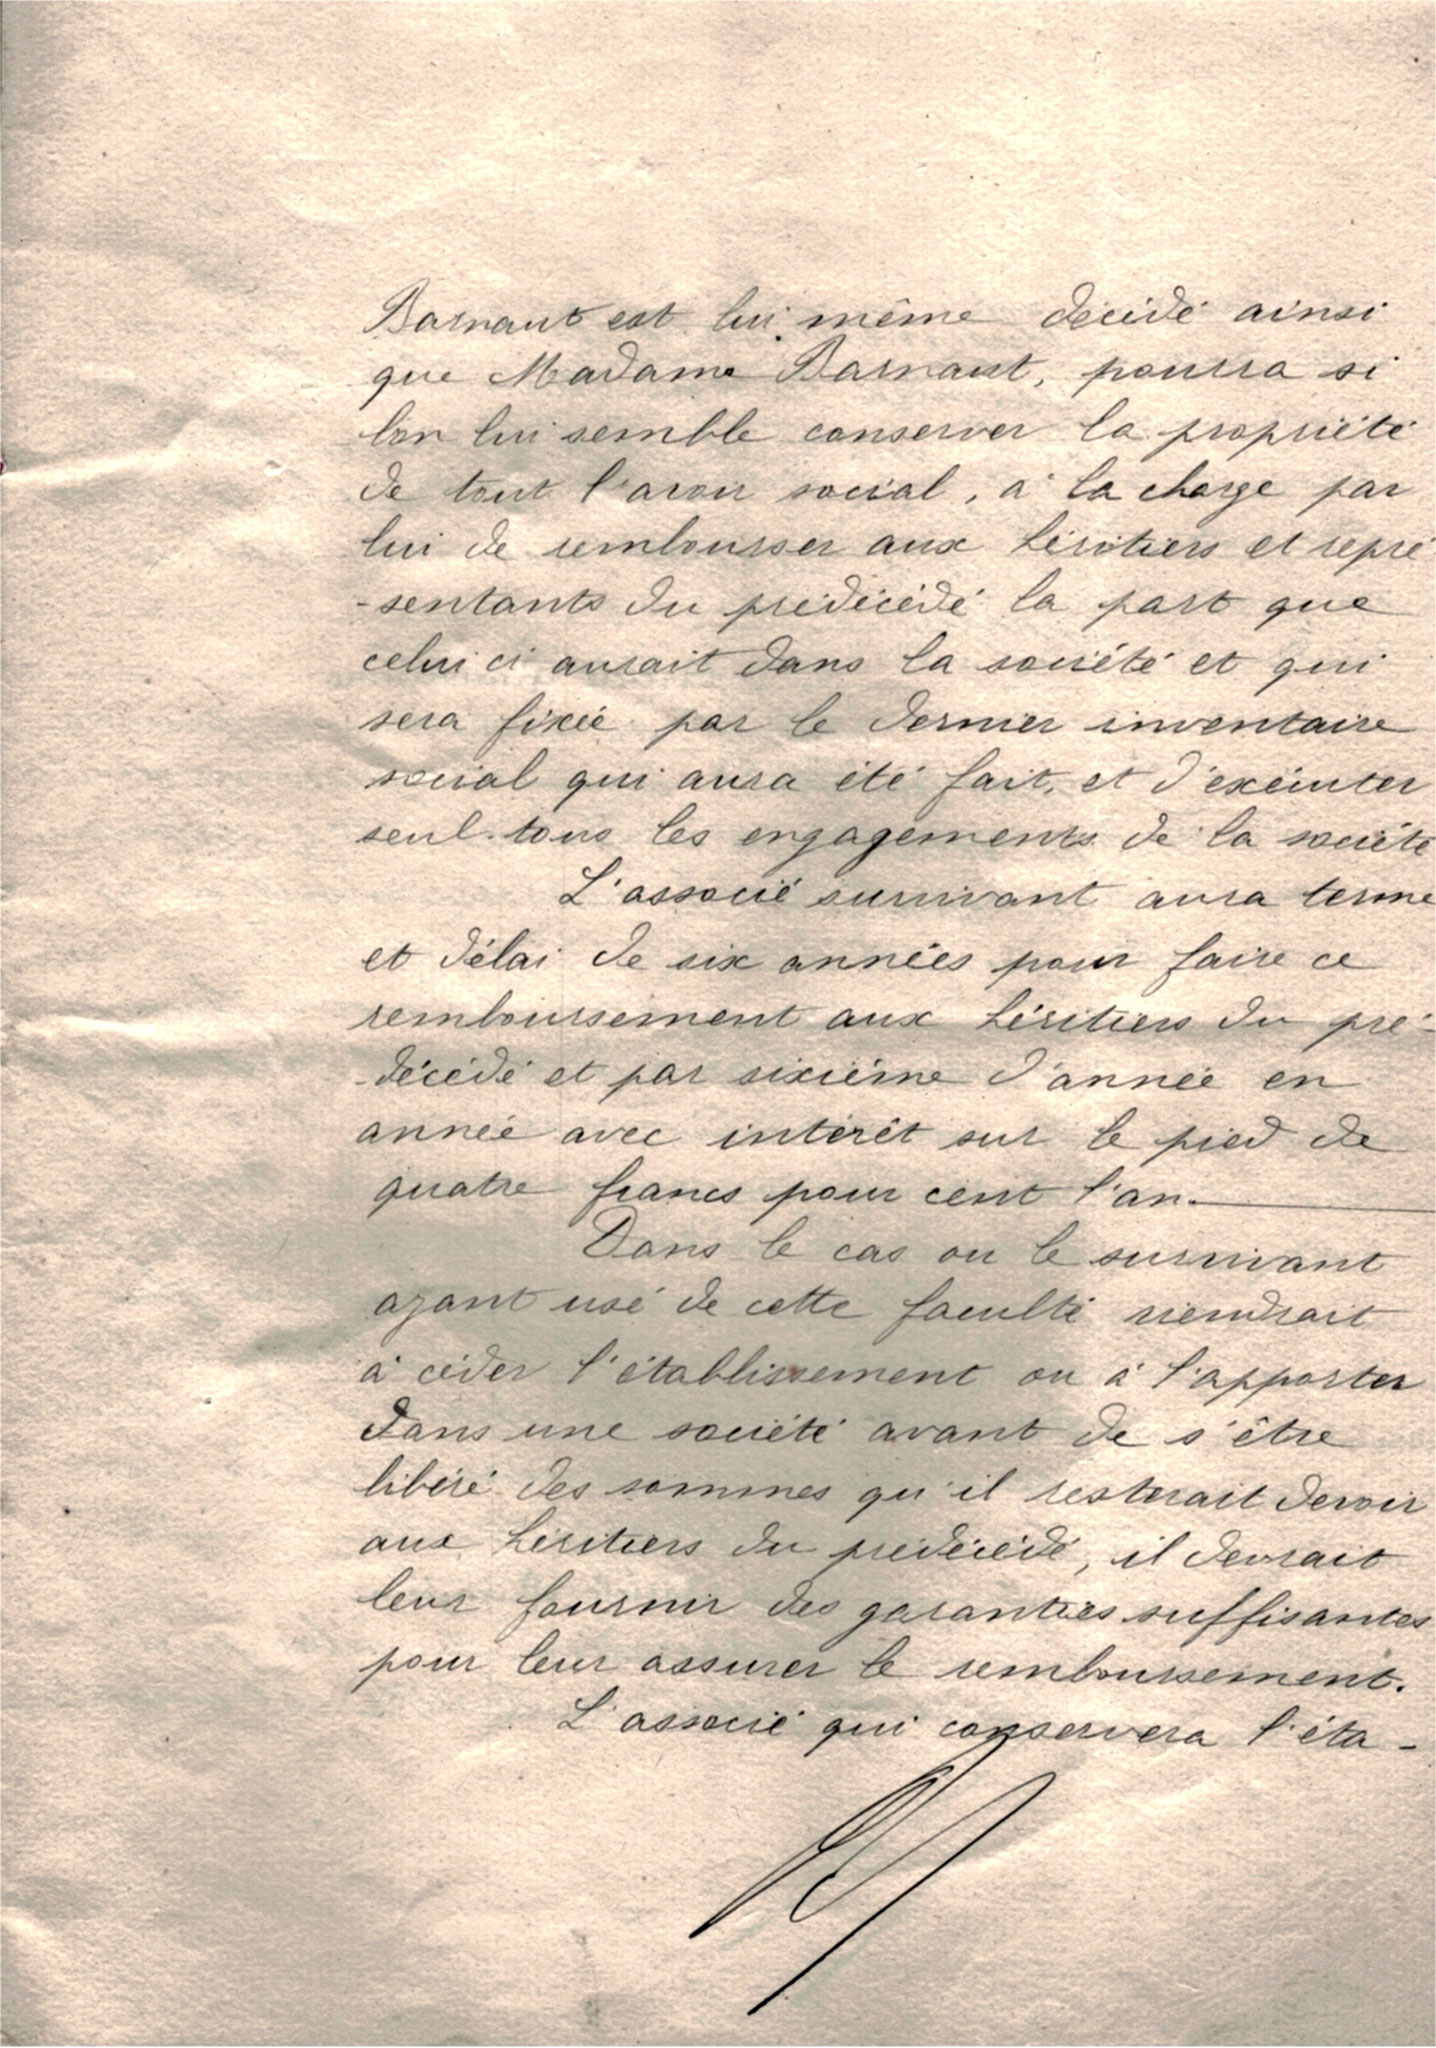 Barnaut est lui même décédé ainsi
que Madame Barnaut, pourra si
bon lui semble conserver la propriété
de tout l'avoir social, à la charge par
lui de rembourser aux héritiers et repré
-sentants du prédécédé la part que
celui ci aurait dans la société et qui
sera fixée par le dernier inventaire
social qui aura été fait, et d'exécuter
seul tous les engagements de la société
L'associé survivant aura terme
et délai de six années pour faire ce
remboursement aux héritiers du pré-
-décédé et par sixième d'année en
année avec intérêt sur le pied de
quatre francs pour cent l'an.
Dans le cas ou le survivant
ayant usé de cette faculté viendrait
à céder l'établissement ou à l'apporter
dans une société avant de s'être
libéré des sommes qu'il resterait devoir
aux héritiers du prédécédé, il devrait
leur fournir des garanties suffisantes
pour leur assurer le remboursement.
L'associé qui conservera l'éta-